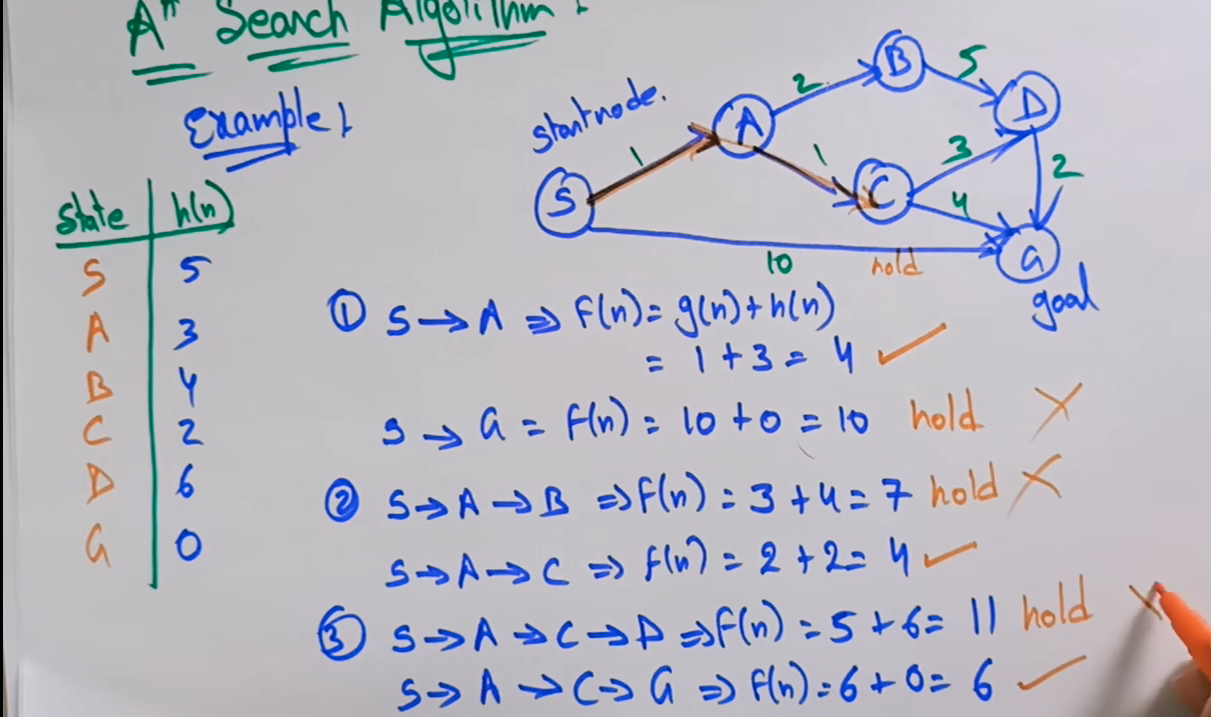 A* Search Algorithm:
Example 1
start node.
State h(n)
S 5
A 3
B 4
C 2
D 6
G 0
S
A
B
C
D
G
1
2
5
1
3
4
2
10
hold
goal
① S → A ⇒ f(n) = g(n) + h(n)
= 1 + 3 = 4 ✓
S → G = f(n) = 10 + 0 = 10 hold ✗
② S → A → B ⇒ f(n) = 3 + 4 = 7 hold ✗
S → A → C ⇒ f(n) = 2 + 2 = 4 ✓
③ S → A → C → D ⇒ f(n) = 5 + 6 = 11 hold ✗
S → A → C → G ⇒ f(n) = 6 + 0 = 6 ✓